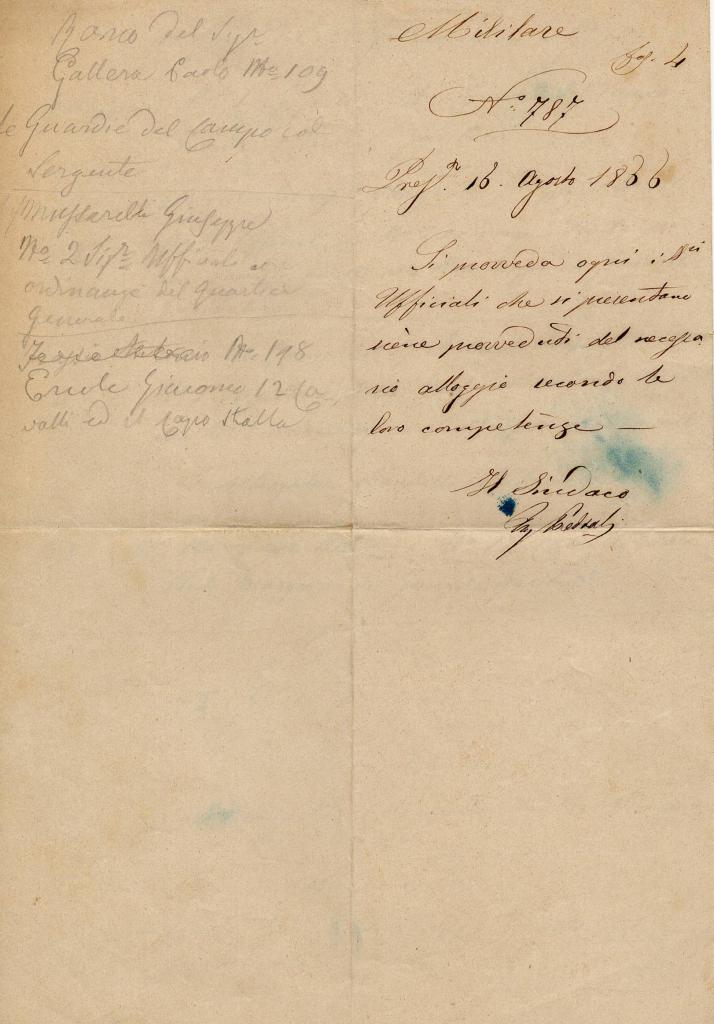 del Sigr
Gallera Carlo No 109
le Guardie del Campo col
Sergente
Giuseppe
No 2 Sigri Ufficiali con
ordinanze del Quartier
Generale
No 198
Giacomo 12 Ca
valli ed il Capo Stalla
Militare
fg. 4
No 787
Prest. 16. Agosto 1866
Si provveda ogni i Sri
Ufficiali che si presentano
siene provveduti del necessa
rio alloggio secondo le
loro competenze —
Il Sindaco